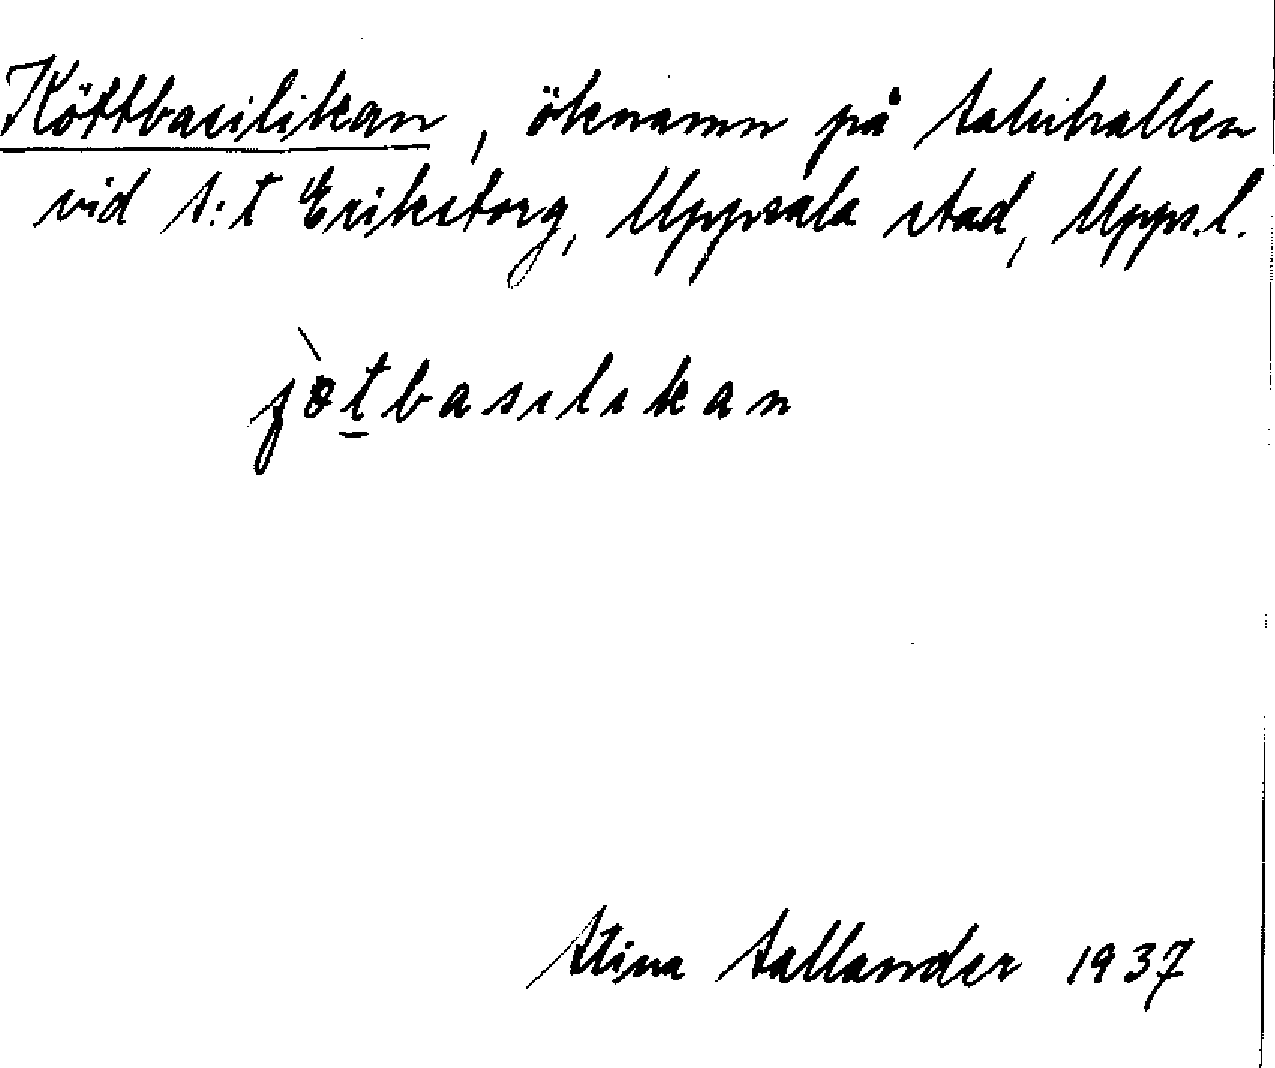 Köttbasilikan, öknamn på Saluhallen
vid S:t Erikstorg, Uppsala stad, Upps.l.
ʃòtbasılıkan
Stina Sallander 1937